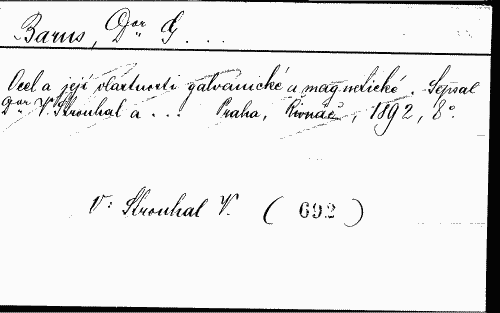 Barus, Dor G ...
Ocel a její vlastnosti galvanické a magnetické. Sepsal
Dor V. Strouhal a ... Praha, Řivnáč, 1892, 8°.
V: Strouhal V. (692)